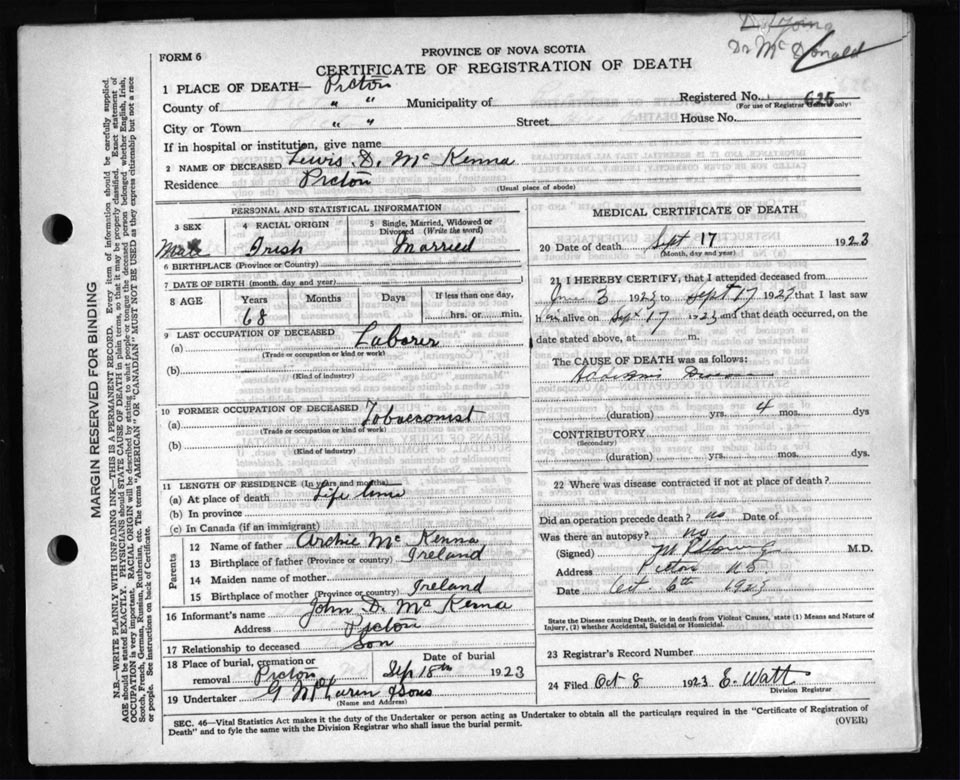 Dr Young
Dr McDonald
FORM 6
PROVINCE OF NOVA SCOTIA
CERTIFICATE OF REGISTRATION OF DEATH
1 PLACE OF DEATH— Pictou
Registered No. 625
(For use of Registrar Gen. only)
County of " " Municipality of
City or Town " " Street House No.
If in hospital or institution, give name
2 NAME OF DECEASED Lewis D. McKenna
Residence Pictou
(Usual place of abode)
PERSONAL AND STATISTICAL INFORMATION
3 SEX Male
4 RACIAL ORIGIN Irish
5 Single, Married, Widowed or Divorced (Write the word) Married
6 BIRTHPLACE (Province or Country)
7 DATE OF BIRTH (month, day and year)
8 AGE Years 68 Months Days If less than one day, hrs. or min.
9 LAST OCCUPATION OF DECEASED
(a) Laborer
(Trade or occupation or kind or work)
(b)
(Kind of industry)
10 FORMER OCCUPATION OF DECEASED
(a) Tobacconist
(Trade or occupation or kind of work)
(b)
(Kind of industry)
11 LENGTH OF RESIDENCE (In years and months)
(a) At place of death Life time
(b) In province
(c) In Canada (if an immigrant)
Parents
12 Name of father Archie McKenna
13 Birthplace of father (Province or country) Ireland
14 Maiden name of mother
15 Birthplace of mother (Province or country) Ireland
16 Informant's name John D. McKenna
Address Pictou
17 Relationship to deceased Son
18 Place of burial, cremation or removal Pictou
Date of burial Sep 18th 1923
19 Undertaker Sons
(Name and Address)
MEDICAL CERTIFICATE OF DEATH
20 Date of death Sept 17 1923
(Month, day and year)
21 I HEREBY CERTIFY, that I attended deceased from
3 1923 to Sept 17 1923 that I last saw
h im alive on Sept 17 1923 and that death occurred, on
date stated above, at m.
The CAUSE OF DEATH was as follows:
Addisons Disease
(duration) yrs. 4 mos. dys
CONTRIBUTORY
(Secondary)
(duration) yrs. mos. dys
22 Where was disease contracted if not at place of death?
Did an operation precede death? no Date of
Was there an autopsy? no
(Signed) Young M.D.
Address Pictou NS
Date Oct. 6th 1923
State the Disease causing Death, or in death from Violent Causes, state (1) Means and Nature of
Injury, (2) whether Accidental, Suicidal or Homicidal.
23 Registrar's Record Number
24 Filed Oct 8 1923 E. Watt
Division Registrar
SEC. 46—Vital Statistics Act makes it the duty of the Undertaker or person acting as Undertaker to obtain all the particulars required in the "Certificate of Registration of
Death" and to fyle the same with the Division Registrar who shall issue the burial permit.
(OVER)
MARGIN RESERVED FOR BINDING
N.B.—WRITE PLAINLY WITH UNFADING INK—THIS IS A PERMANENT RECORD. Every item of information should be carefully supplied.
AGE should be stated EXACTLY. PHYSICIANS should STATE CAUSE OF DEATH in plain terms, so that it may be properly classified. Exact statement of
OCCUPATION is very important. RACIAL ORIGIN will be described by stating to what people or tongue the deceased person belonged, whether English, Irish,
Scotch, French, German, Russian, Ruthenian, etc. The terms "AMERICAN" OR "CANADIAN" MUST NOT BE USED as they express citizenship but not a race
or people. See instructions on back of Certificate.